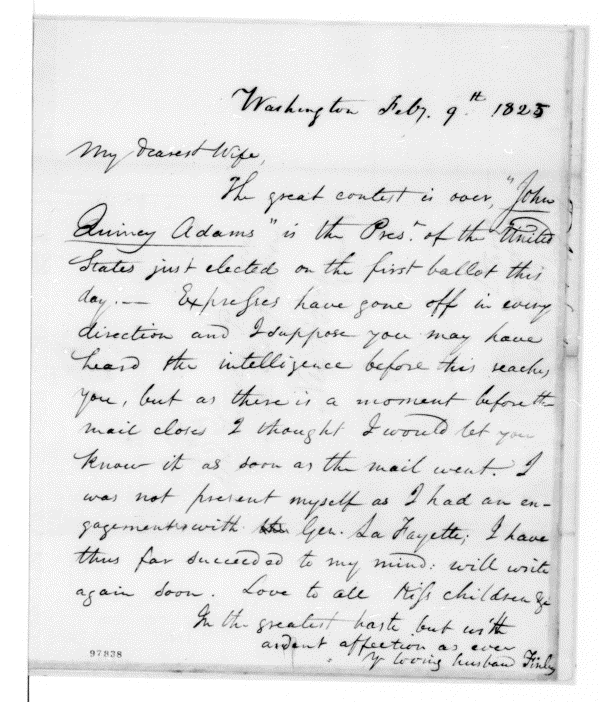 Washington Feby. 9th. 1825
My Dearest Wife,
The great contest is over, "John
Quincy Adams" is the Prest. of the United
States just elected on the first ballot this
day.— Expresses have gone off in every
direction and I suppose you may have
heard the intelligence before this reaches
you, but as there is a moment before the
mail closes I thought I would let you
know it as soon as the mail went. I
was not present myself as I had an en-
gagement with Gen. La Fayette; I have
thus far succeeded to my mind: will write
again soon. Love to all Kiss children &c
In the greatest haste but with
ardent affection as ever
Yr loving husband Finley
97838